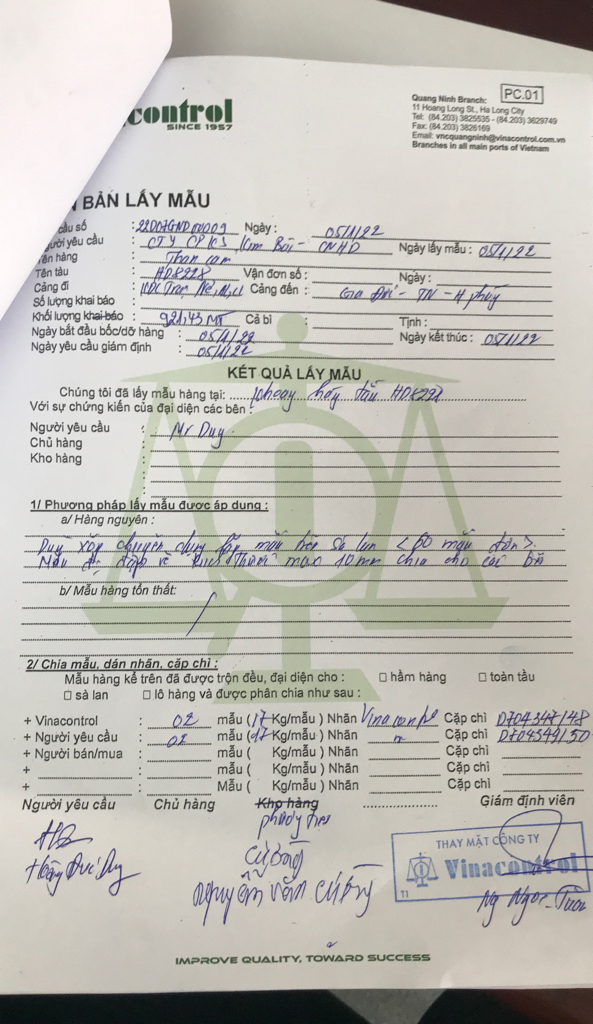 control
SINCE 1957
PC.01
Quang Ninh Branch:
11 Hoang Long St., Ha Long City
Tel: (84.203) 3825535 - (84.203) 3629749
Fax: (84.203) 3826169
Email: vncquangninh@vinacontrol.com.vn
Branches in all main ports of Vietnam
BẢN LẤY MẪU
cầu số : Ngày : 05/1/22
người yêu cầu : CTY CP ICS Kim Bôi - CNHD Ngày lấy mẫu : 05/1/22
ên hàng : Than cam
Tên tàu : HDX228 Vận đơn số : Ngày :
Cảng đi : Cảng đến :
Số lượng khai báo
Khối lượng khai báo : 921,43 MT Cả bì : Tịnh :
Ngày bắt đầu bốc/dỡ hàng : 05/1/22 Ngày kết thúc : 05/1/22
Ngày yêu cầu giám định : 05/1/22
KẾT QUẢ LẤY MẪU
Chúng tôi đã lấy mẫu hàng tại: tàu HDX228
Với sự chứng kiến của đại diện các bên :
Người yêu cầu : Mr Duy
Chủ hàng :
Kho hàng :
1/ Phương pháp lấy mẫu được áp dụng :
a/ Hàng nguyên :
Dùng xẻng chuyên dụng lấy mẫu trên Sà lan <60 mẫu đơn>.
max 10 mm chia cho các bên
b/ Mẫu hàng tổn thất:
2/ Chia mẫu, dán nhãn, cặp chì :
Mẫu hàng kể trên đã được trộn đều, đại diện cho : □ hầm hàng □ toàn tầu
□ sà lan □ lô hàng và được phân chia như sau :
+ Vinacontrol : 02 mẫu (17 Kg/mẫu ) Nhãn Vinacontrol Cặp chì D704347/48
+ Người yêu cầu : 02 mẫu (17 Kg/mẫu ) Nhãn Cặp chì D704349/50
+ Người bán/mua : mẫu ( Kg/mẫu ) Nhãn Cặp chì
+ : mẫu ( Kg/mẫu ) Nhãn Cặp chì
+ : Mẫu ( Kg/mẫu ) Nhãn Cặp chì
Người yêu cầu Chủ hàng Kho hàng Giám định viên
Hoàng Đức Duy
Cường
Nguyễn Văn Cường
THAY MẶT CÔNG TY
Vinacontrol
T1
Ng Ngọc
IMPROVE QUALITY, TOWARD SUCCESS